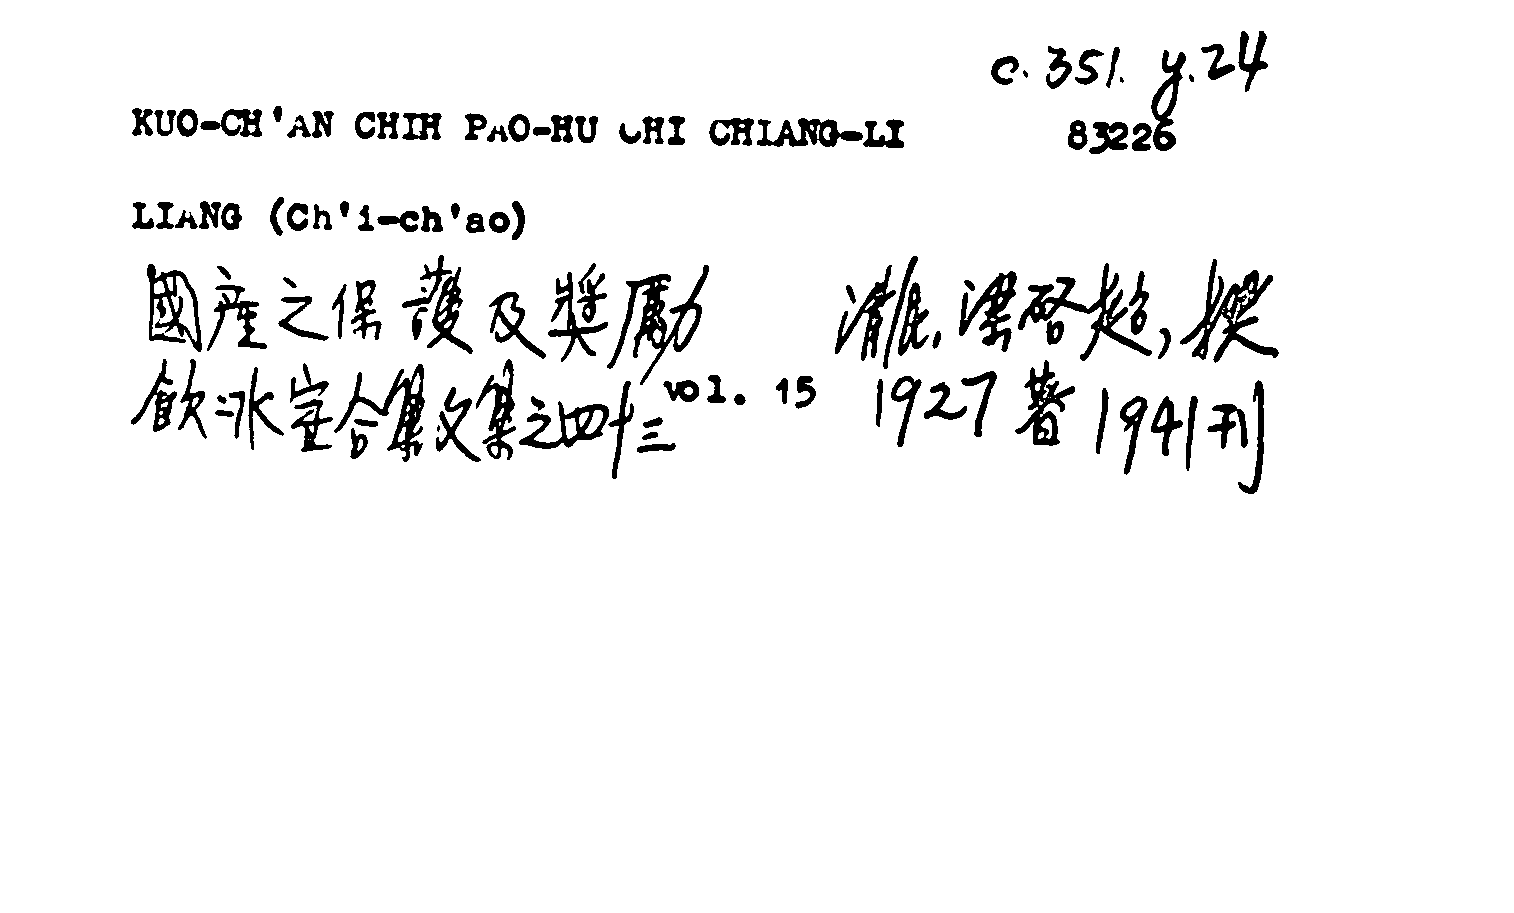 c. 351. y. 24
KUO-CH'AN CHIH PAO-HU CHI CHIANG-LI 83226
LIANG (Ch'i-ch'ao)
國産之保護及獎勵 清民, 梁啓超, 撰
飲冰室合集文集之四十三 vol. 15 1927著 1941刊